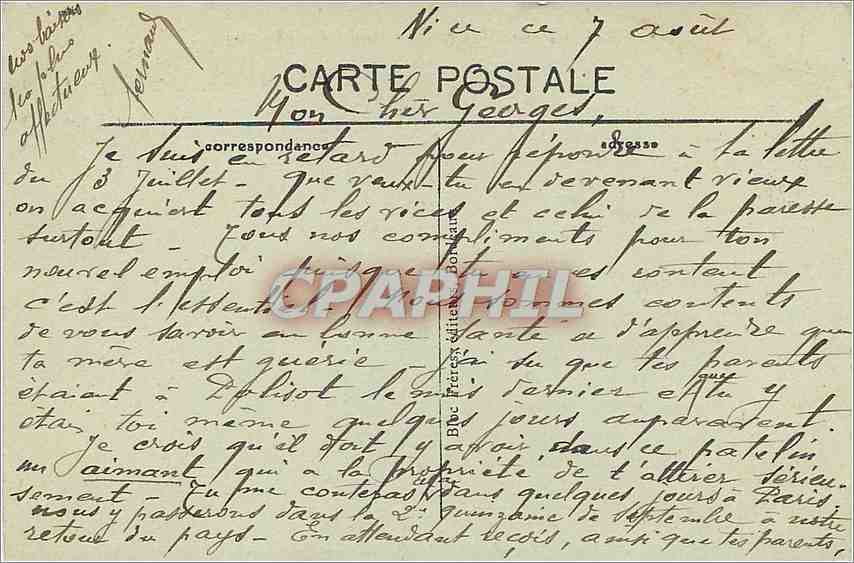 Nice ce 7 août
CARTE POSTALE
Mon Cher Georges,
correspondance
adresse
Je suis en retard pour répondre à ta lettre
du 3 Juillet - que veux-tu en devenant vieux
on acquiert tous les vices et celui de la paresse
surtout - Tous nos compliments pour ton
nouvel emploi puisque tu en es content
c'est l'essentiel - Nous sommes contents
de vous savoir en bonne santé et d'apprendre que
ta mère est guérie - j'ai su que tes parents
étaient à Dolisot le mois dernier et que tu y
étais toi même quelques jours auparavant.
Je crois qu'il doit y avoir dans ce patelin
un aimant qui a la propriété de t'attirer sérieu-
sement - Tu me conteras cela dans quelques jours à Paris
nous y passerons dans la 2e quinzaine de septembre à notre
retour du pays - En attendant reçois, ainsi que tes parents,
nos baisers
les plus
affectueux.
Fernand
Bloc Frères, éditeurs, Bordeaux
CPAPHIL